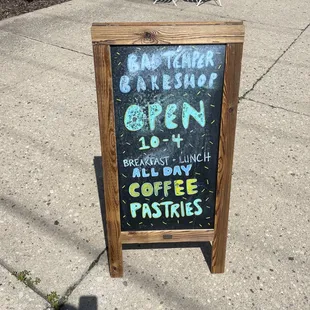 BAD TEMPER
BAKESHOP
OPEN
10-4
BREAKFAST - LUNCH
ALL DAY
COFFEE
PASTRIES